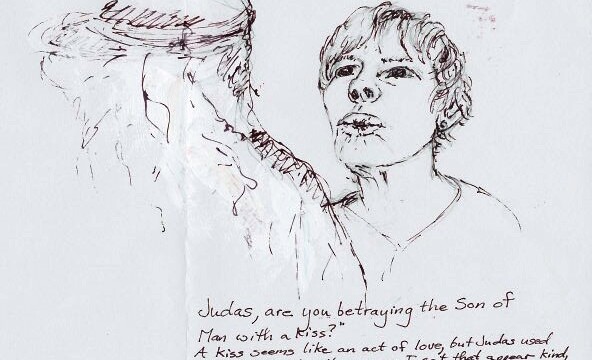 Judas, are you betraying the Son of
Man with a kiss?"
A kiss seems like an act of love, but Judas used
I act that appear kind,